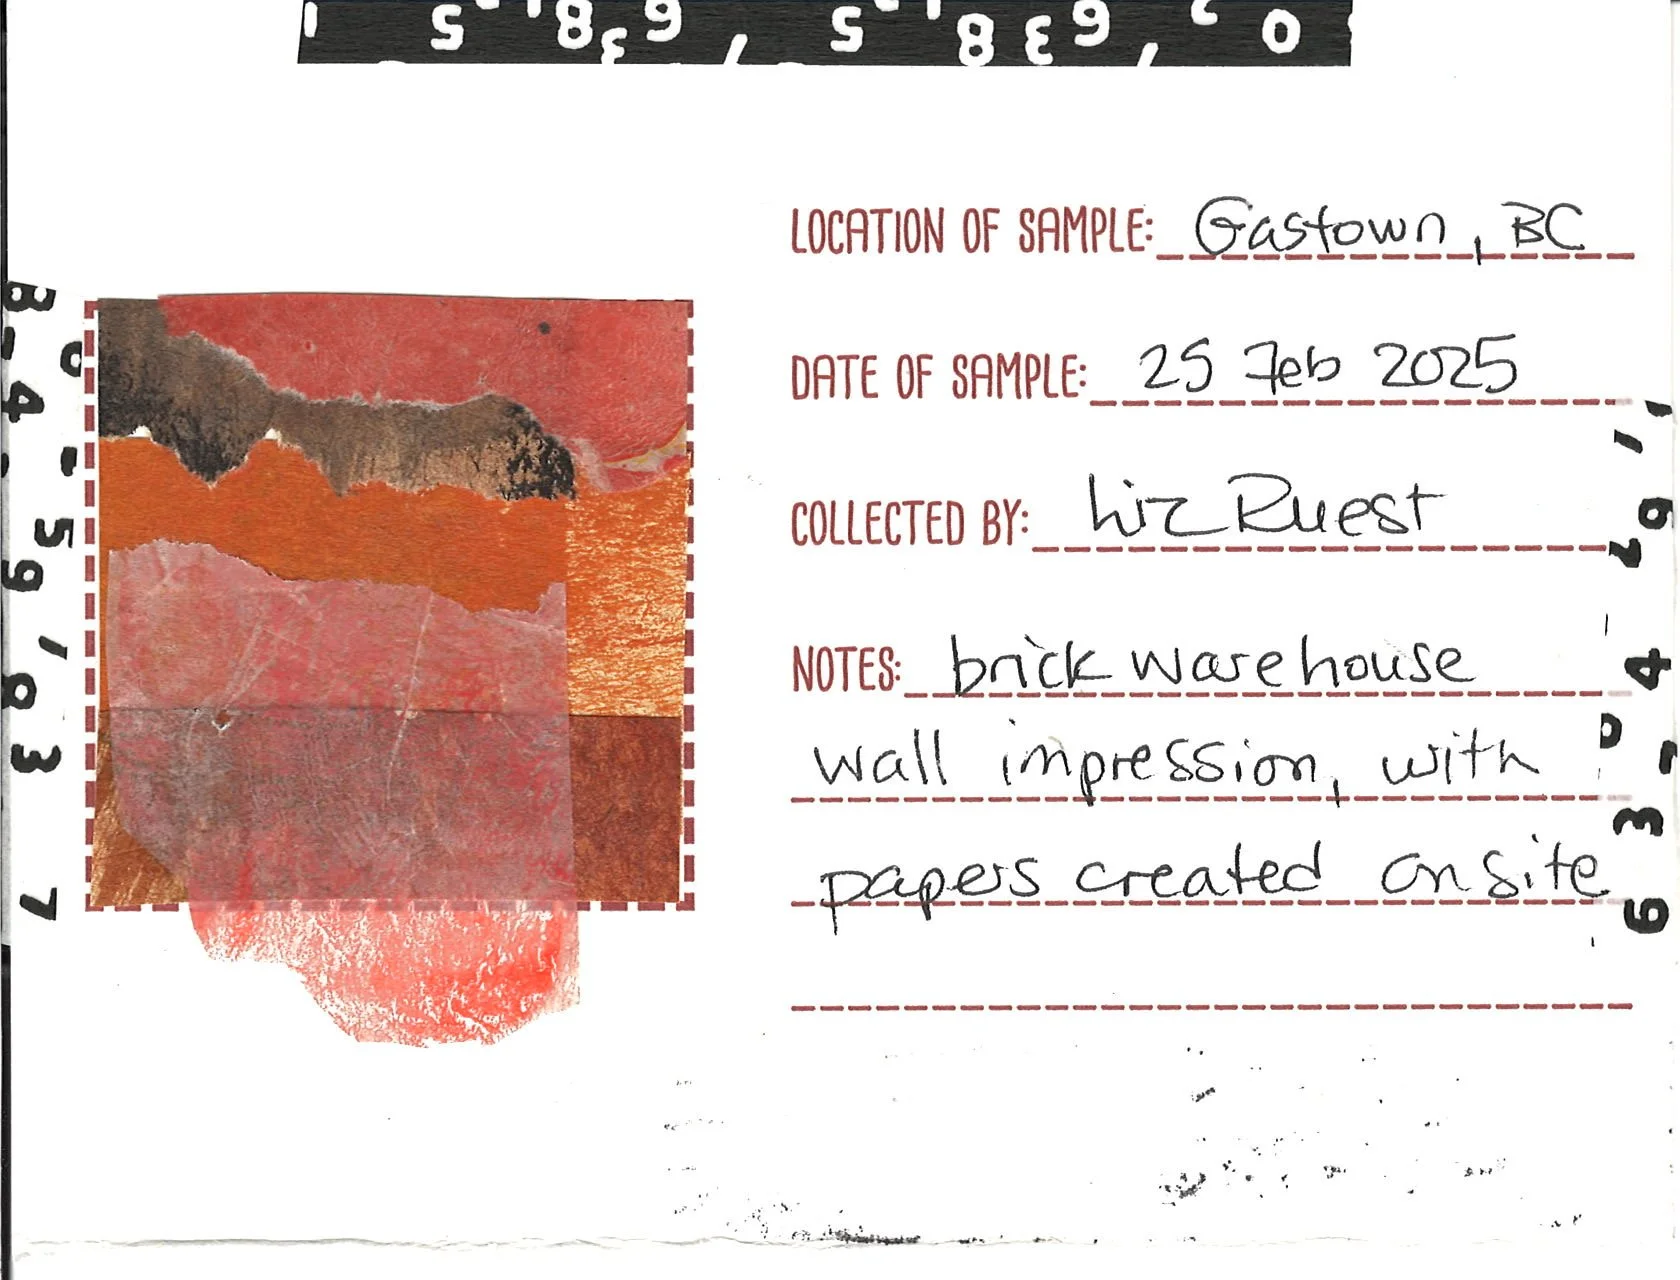 LOCATION OF SAMPLE: Gastown, BC
DATE OF SAMPLE: 25 Feb 2025
COLLECTED BY: Liz Ruest
NOTES: brick warehouse
wall impression, with
papers created on site